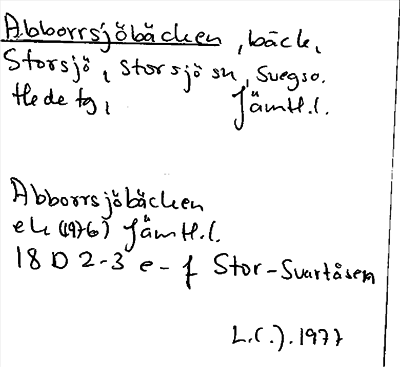 Abborrsjöbäcken, bäck,
Storsjö, Storsjö sn, Svegso.
Hede tg, Jämtl.l.
Abborrsjöbäcken
ek (1976) Jämtl.l.
18 D 2-3 e-f Stor-Svartåsen
L.C.J. 1977